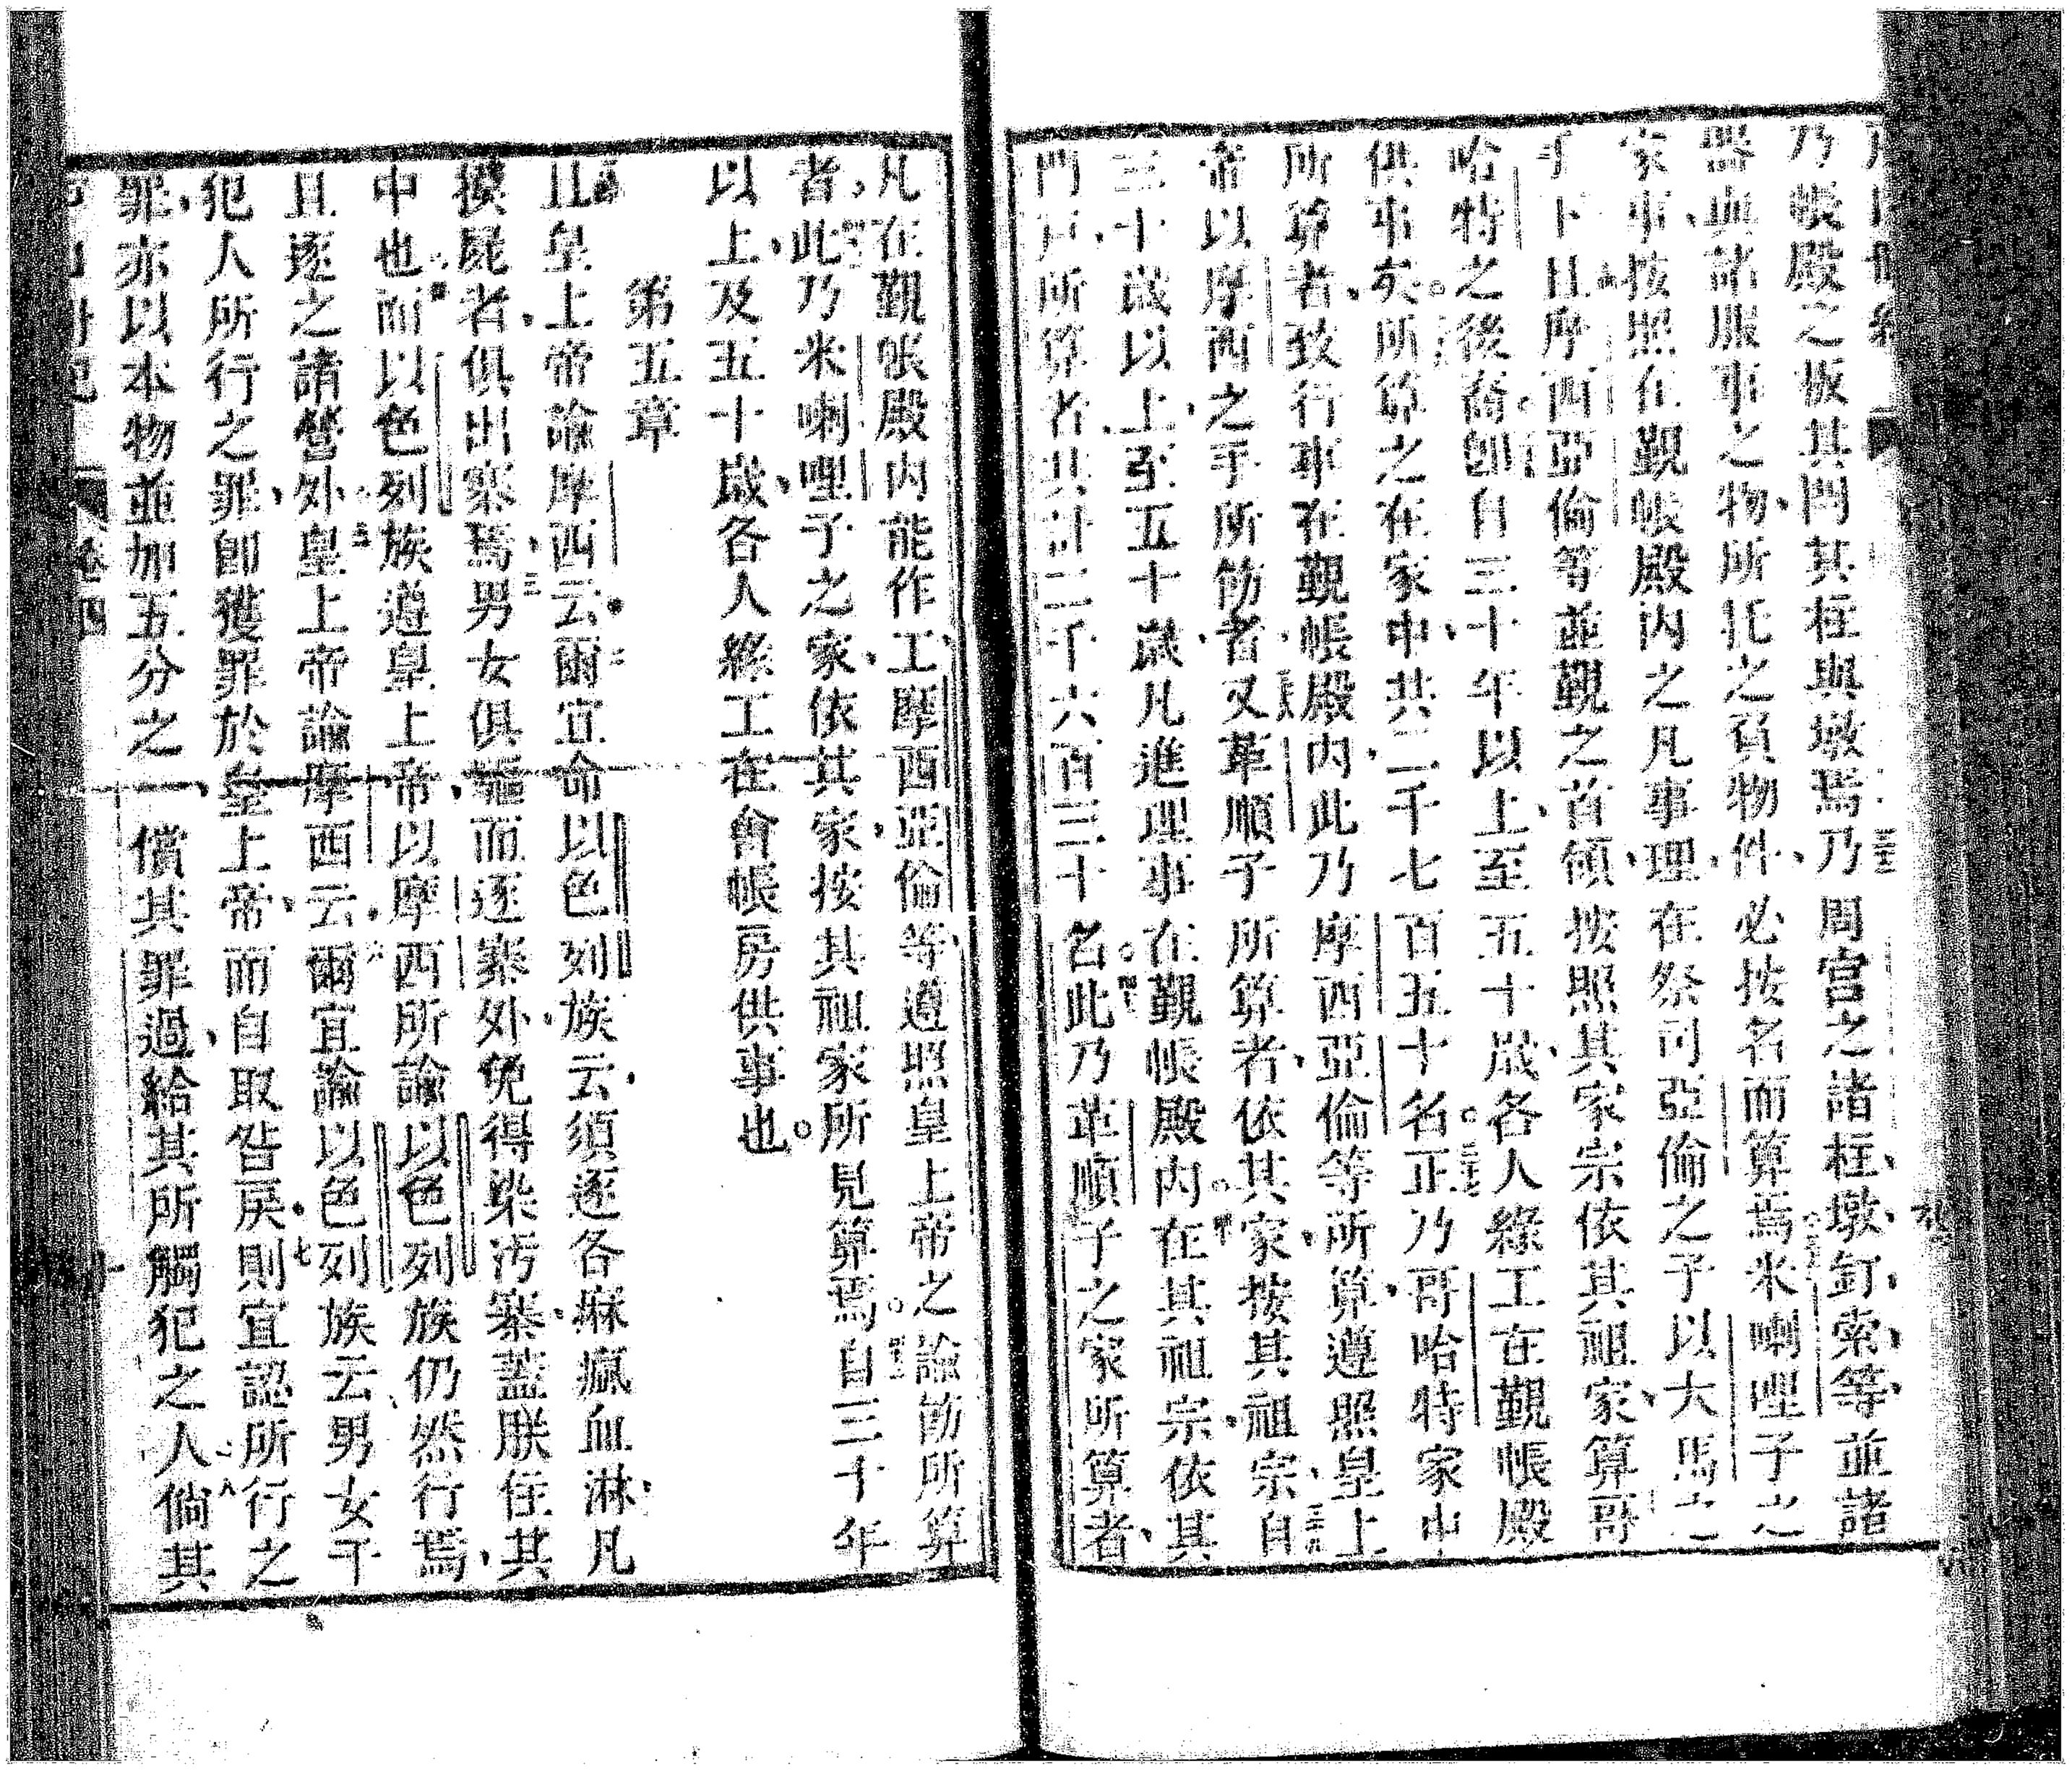 乃帳殿之板其閂其柱與墩焉乃三十二周宮之諸柱墩釘索等並諸
器皿諸服事之物所托之負物件必按名而算焉三十三米喇哩子之
家事按照在覲帳殿內之凡事理在祭司亞倫之子以大馬之
手下三十四且摩西亞倫等並覲之首領按照其家宗依其祖家算哥
哈特之後裔三十五卽自三十年以上至五十歲各人緣工在覲帳殿
供事矣三十六所算之在家中共二千七百五十名三十七正乃哥哈特家中
所算者致行事在覲帳殿內此乃摩西亞倫等所算遵照皇上
帝以摩西之手所飭者三十八又革順子所算者依其家按其祖宗三十九自
三十歲以上至五十歲凡進理事在覲帳殿內四十在其祖宗依其
門戶所算者共計二千六百三十名四一此乃革順子之家所算者
凡在覲帳殿內能作工摩西亞倫等遵照皇上帝之諭飭所算
者四二此乃米喇哩子之家依其家按其祖家所見算焉四三自三十年
以上及五十歲各人緣工在會帳房供事也
第五章
一且皇上帝諭摩西云二爾宜命以色列族云須逐各痳瘋血淋凡
摸屍者俱出寨焉三男女俱驅而逐寨外免得染汚寨蓋朕住其
中也四而以色列族遵皇上帝以摩西所諭以色列族仍然行焉
且逐之諸營外五皇上帝諭摩西云六爾宜諭以色列族云男女干
犯人所行之罪卽獲罪於皇上帝而自取咎戾七則宜認所行之
罪亦以本物並加五分之一償其罪過給其所觸犯之人八倘其
卷四